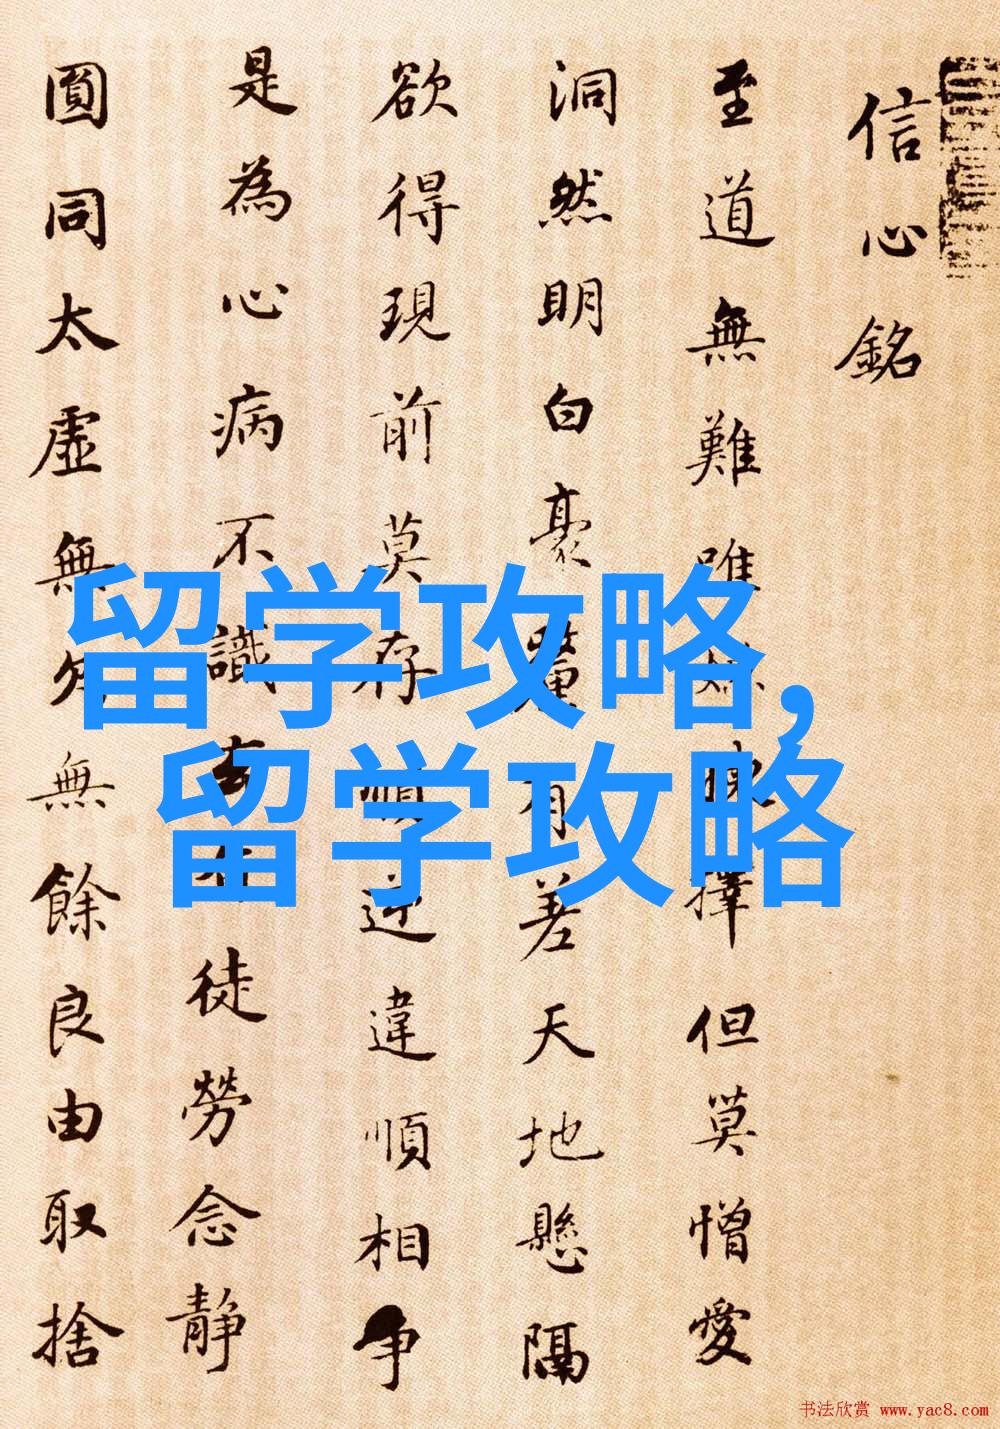 信心銘
至道無難唯嫌揀擇但莫憎愛
洞然明白豪釐有差天地懸隔
欲得現前莫存順逆違順相争
是為心病不識玄徒勞念静
圓同太虚無欠無餘良由取捨
留学攻略,
留学攻略
书法欣赏 www.yac8.com